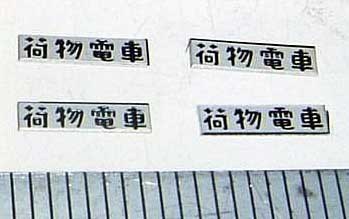 荷物電車
荷物電車
荷物電車
荷物電車